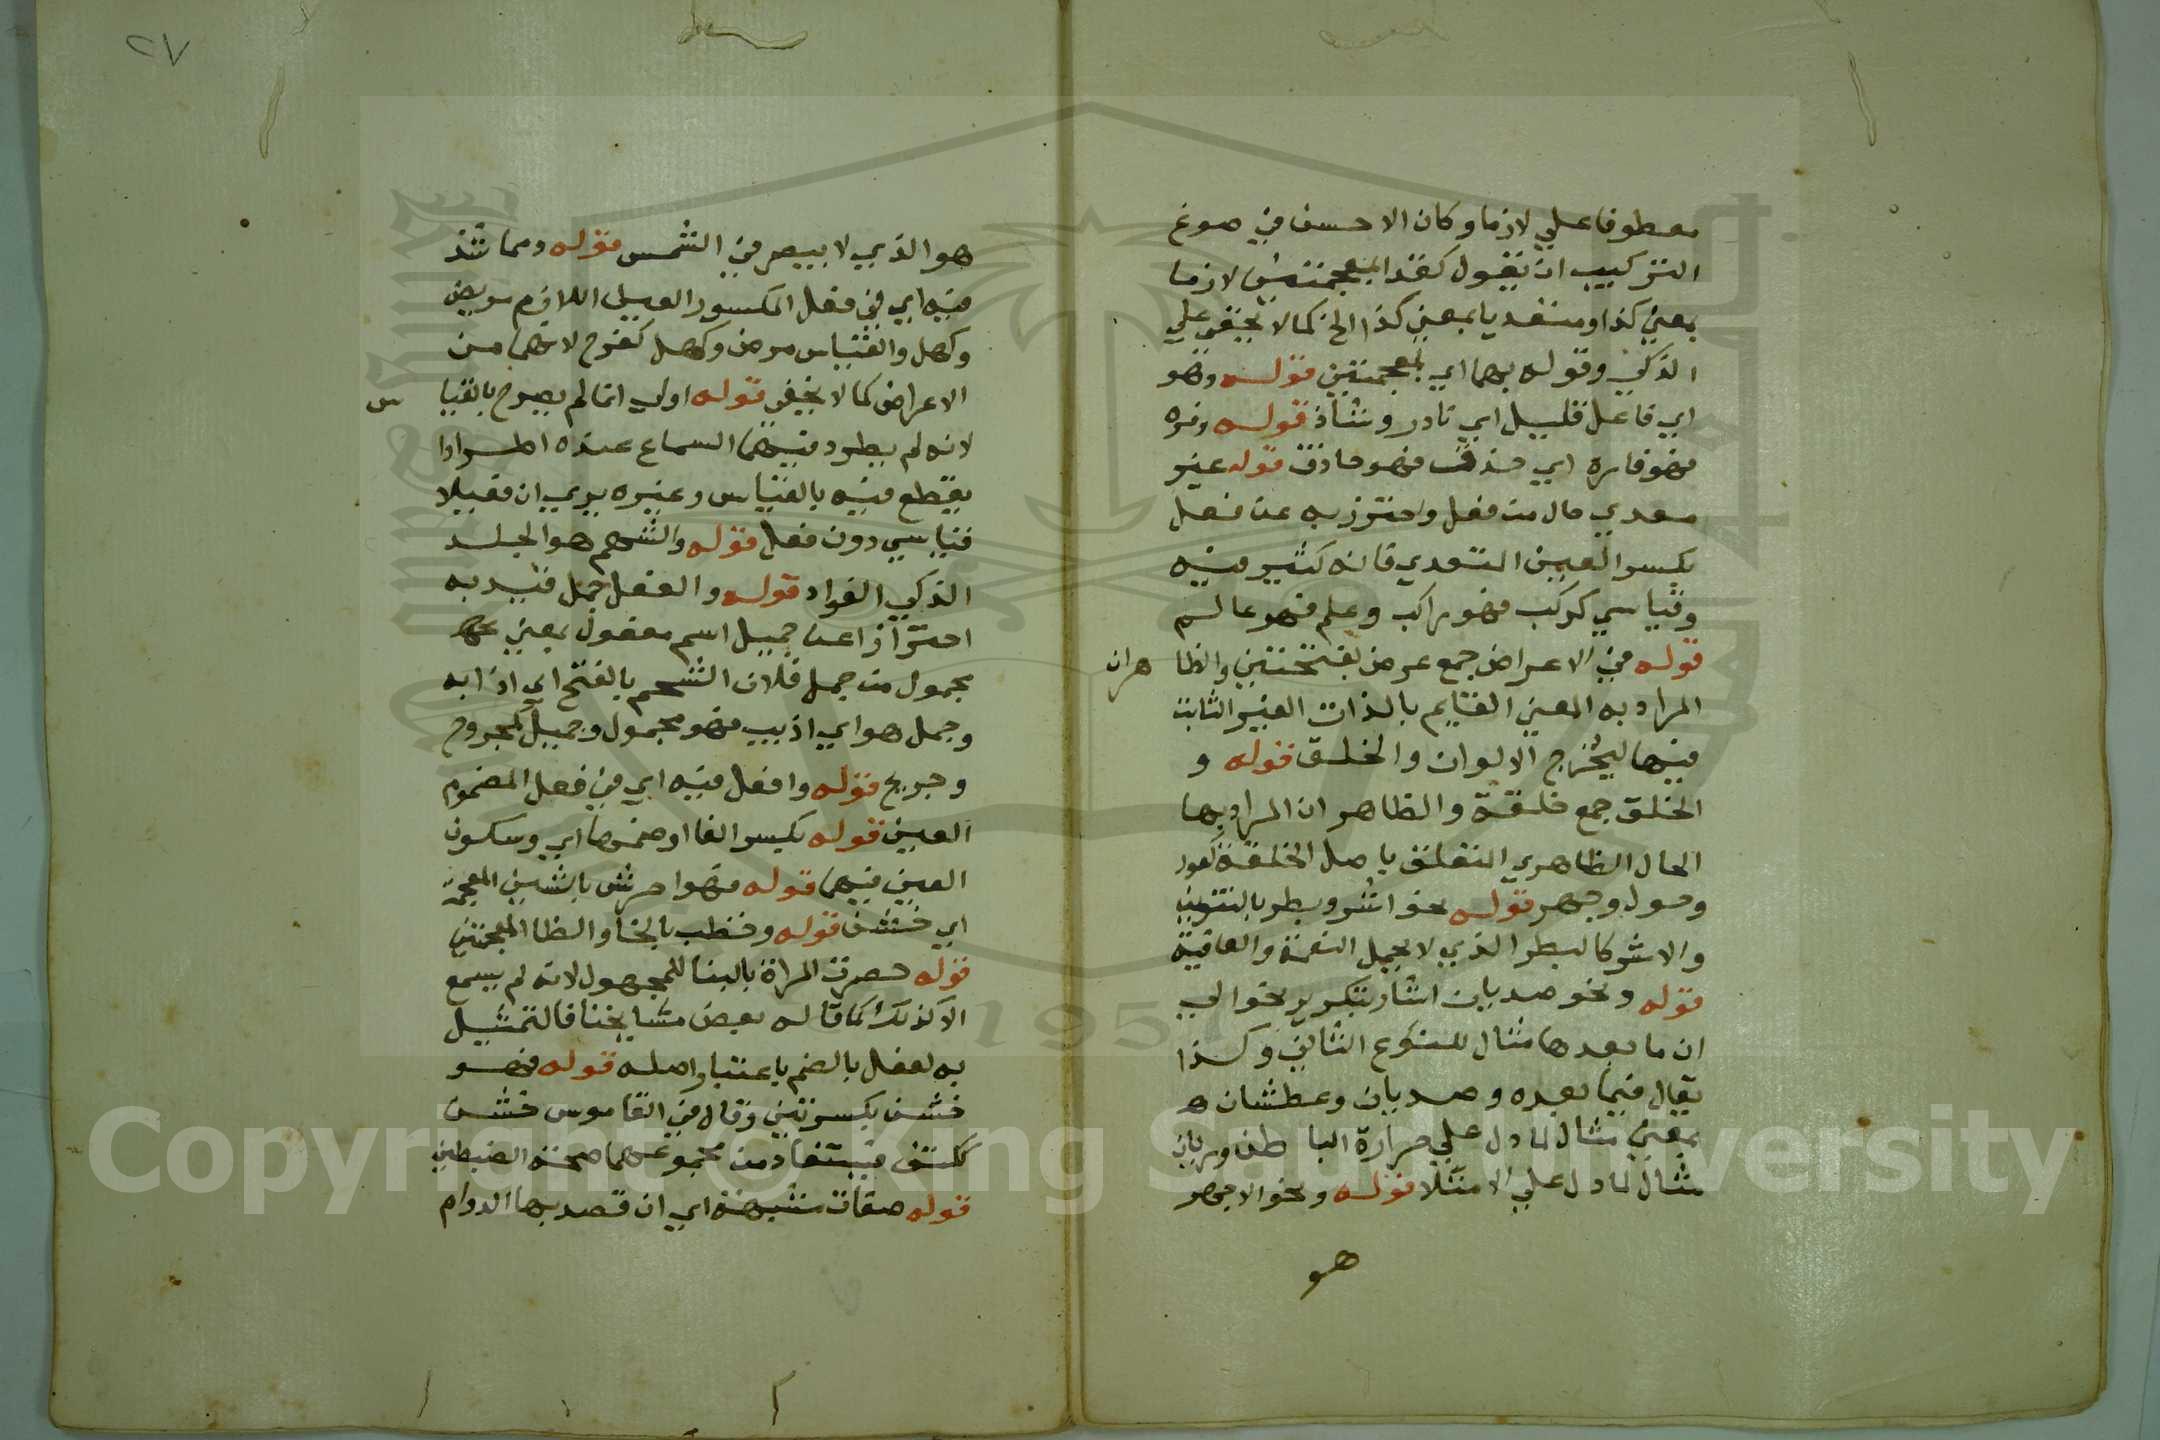 معطوفا علي لازما وكان الاحسن في صوغ
التركيب ان يقول كغذا بمعجمتين لازما
بمعني كذا ومتعديا بمعني كذا الخ كما لا يخفي علي
الذكي وقوله بهما اي بمعجمتين قوله وهو
اي فاعل قليل اي نادر وشاذ قوله وفره
فهو فاره اي حذق فهو حاذق قوله غير
معدي حال من فعل واحترز به عن فعل
بكسر العين المتعدي فانه كثير فيه
وقياسي كركب فهو راكب وعلم فهو عالم
قوله في الاعراض جمع عرض بفتحتين والظا هران
المراد به المعني القايم بالذات الغير الثابت
فيها ليخرج الالوان والخلق قوله و
الخلق جمع خلقة والظاهر ان المراد بها
الحال الظاهري المتعلق باصل الخلقة كعور
وحول وجهر قوله نحو اشر وبطر بالتنوين
والاشر كالبطر الذي لا يحمل النعمة والعافية
قوله ونحو صديان اشار بتكرير نحو الي
ان ما بعدها مثال للنوع الثاني وكذا
يقال فيما بعده وصديان وعطشان
بمعني مثال لما دل علي حرارة الباطن وريان
مثال لما دل علي الامتلا قوله ونحو الاجهر
هو
٢٧
هو الذي لا يبصر في الشمس قوله ومما شذ
فيه اي في فعل المكسور العين اللازم مريض
وكهل والقياس مرض وكهل كفرح لانهما من
الاعراض كما لا يخفي قوله اولي انما لم يصرح بالقيا س
لانه لم يطرد فيهما السماع عنده اطرادا
يقطع فيه بالقياس وغيره يري ان فعيلا
قياسي دون فعل قوله والشهم هو الجلد
الذكي الفواد قوله والفعل جمل قيد به
احترازا عن جميل اسم مفعول بمعني
مجمول من جمل فلان الشحم بالفتح اي اذابه
وجمل هو اي اذيب فهو مجمول وجميل كمجروح
وجريح قوله وافعل فيه اي في فعل المضموم
العين قوله بكسر الفا او ضمها اي وسكون
العين فيهما قوله فهو احرش بالشين المعجمة
اي خشن قوله وخظب بالخا والظا المعجمتين
قوله حصرت المراة بالبنا للمجهول لانه لم يسمع
الا كذلك كما قاله بعض مشايخنا فالتمثيل
به لفعل بالضم باعتبار اصله قوله فهو
خشن بكسرتين وقال في القاموس خشن
ككتف فيستفاد من مجموعهما صحة الضبطين
قوله صفات مشبهة اي ان قصد بها الدوام
Copyright © King Saud University
1957